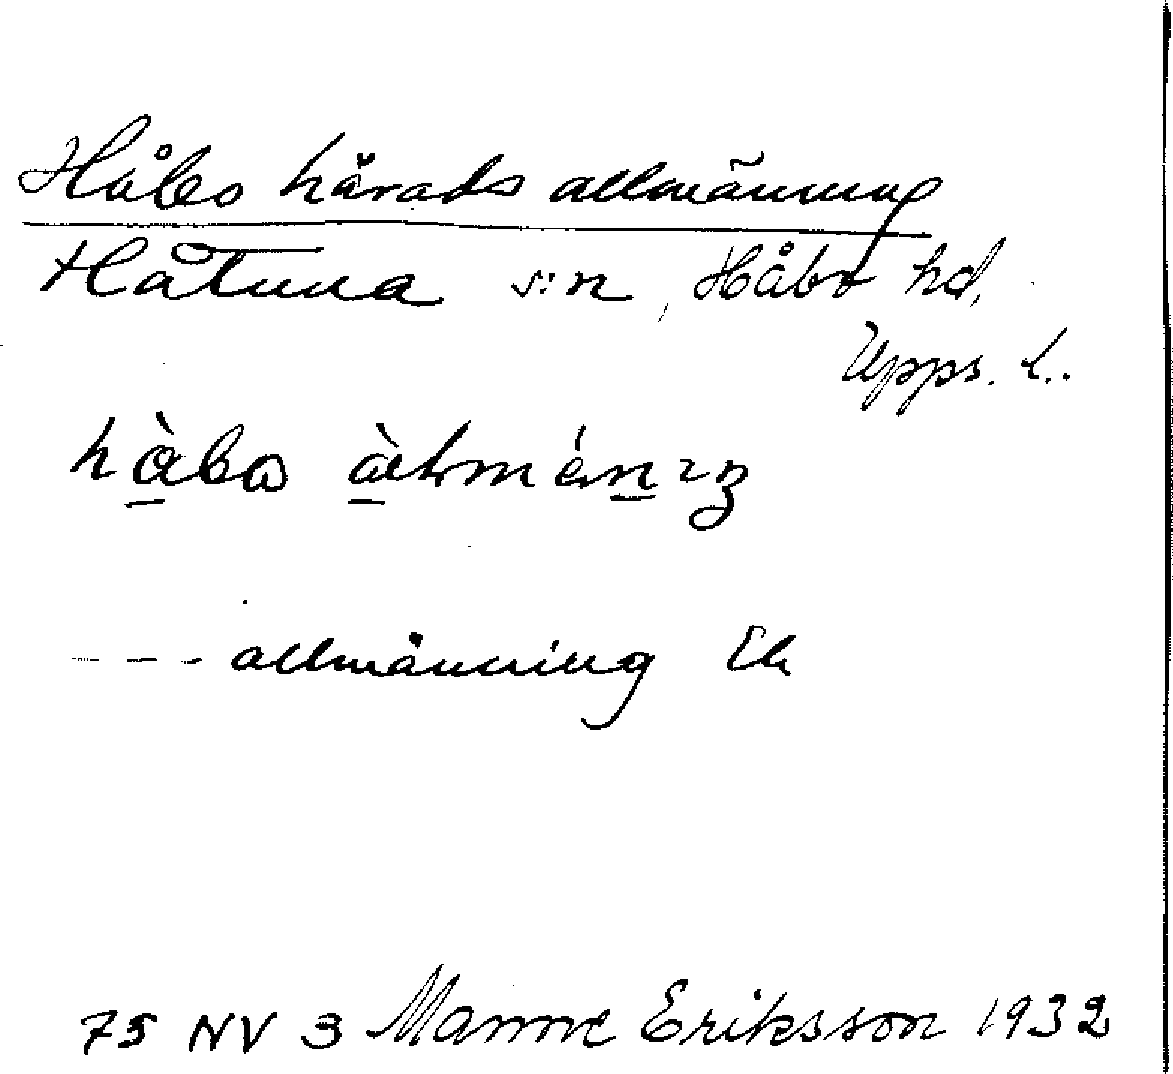 Håbo härads allmänning
Håtuna s:n, Håbo hd,
Upps. l.
hàbo àlmén
--- allmänning Ek
75 NV 3 Manne Eriksson 1932